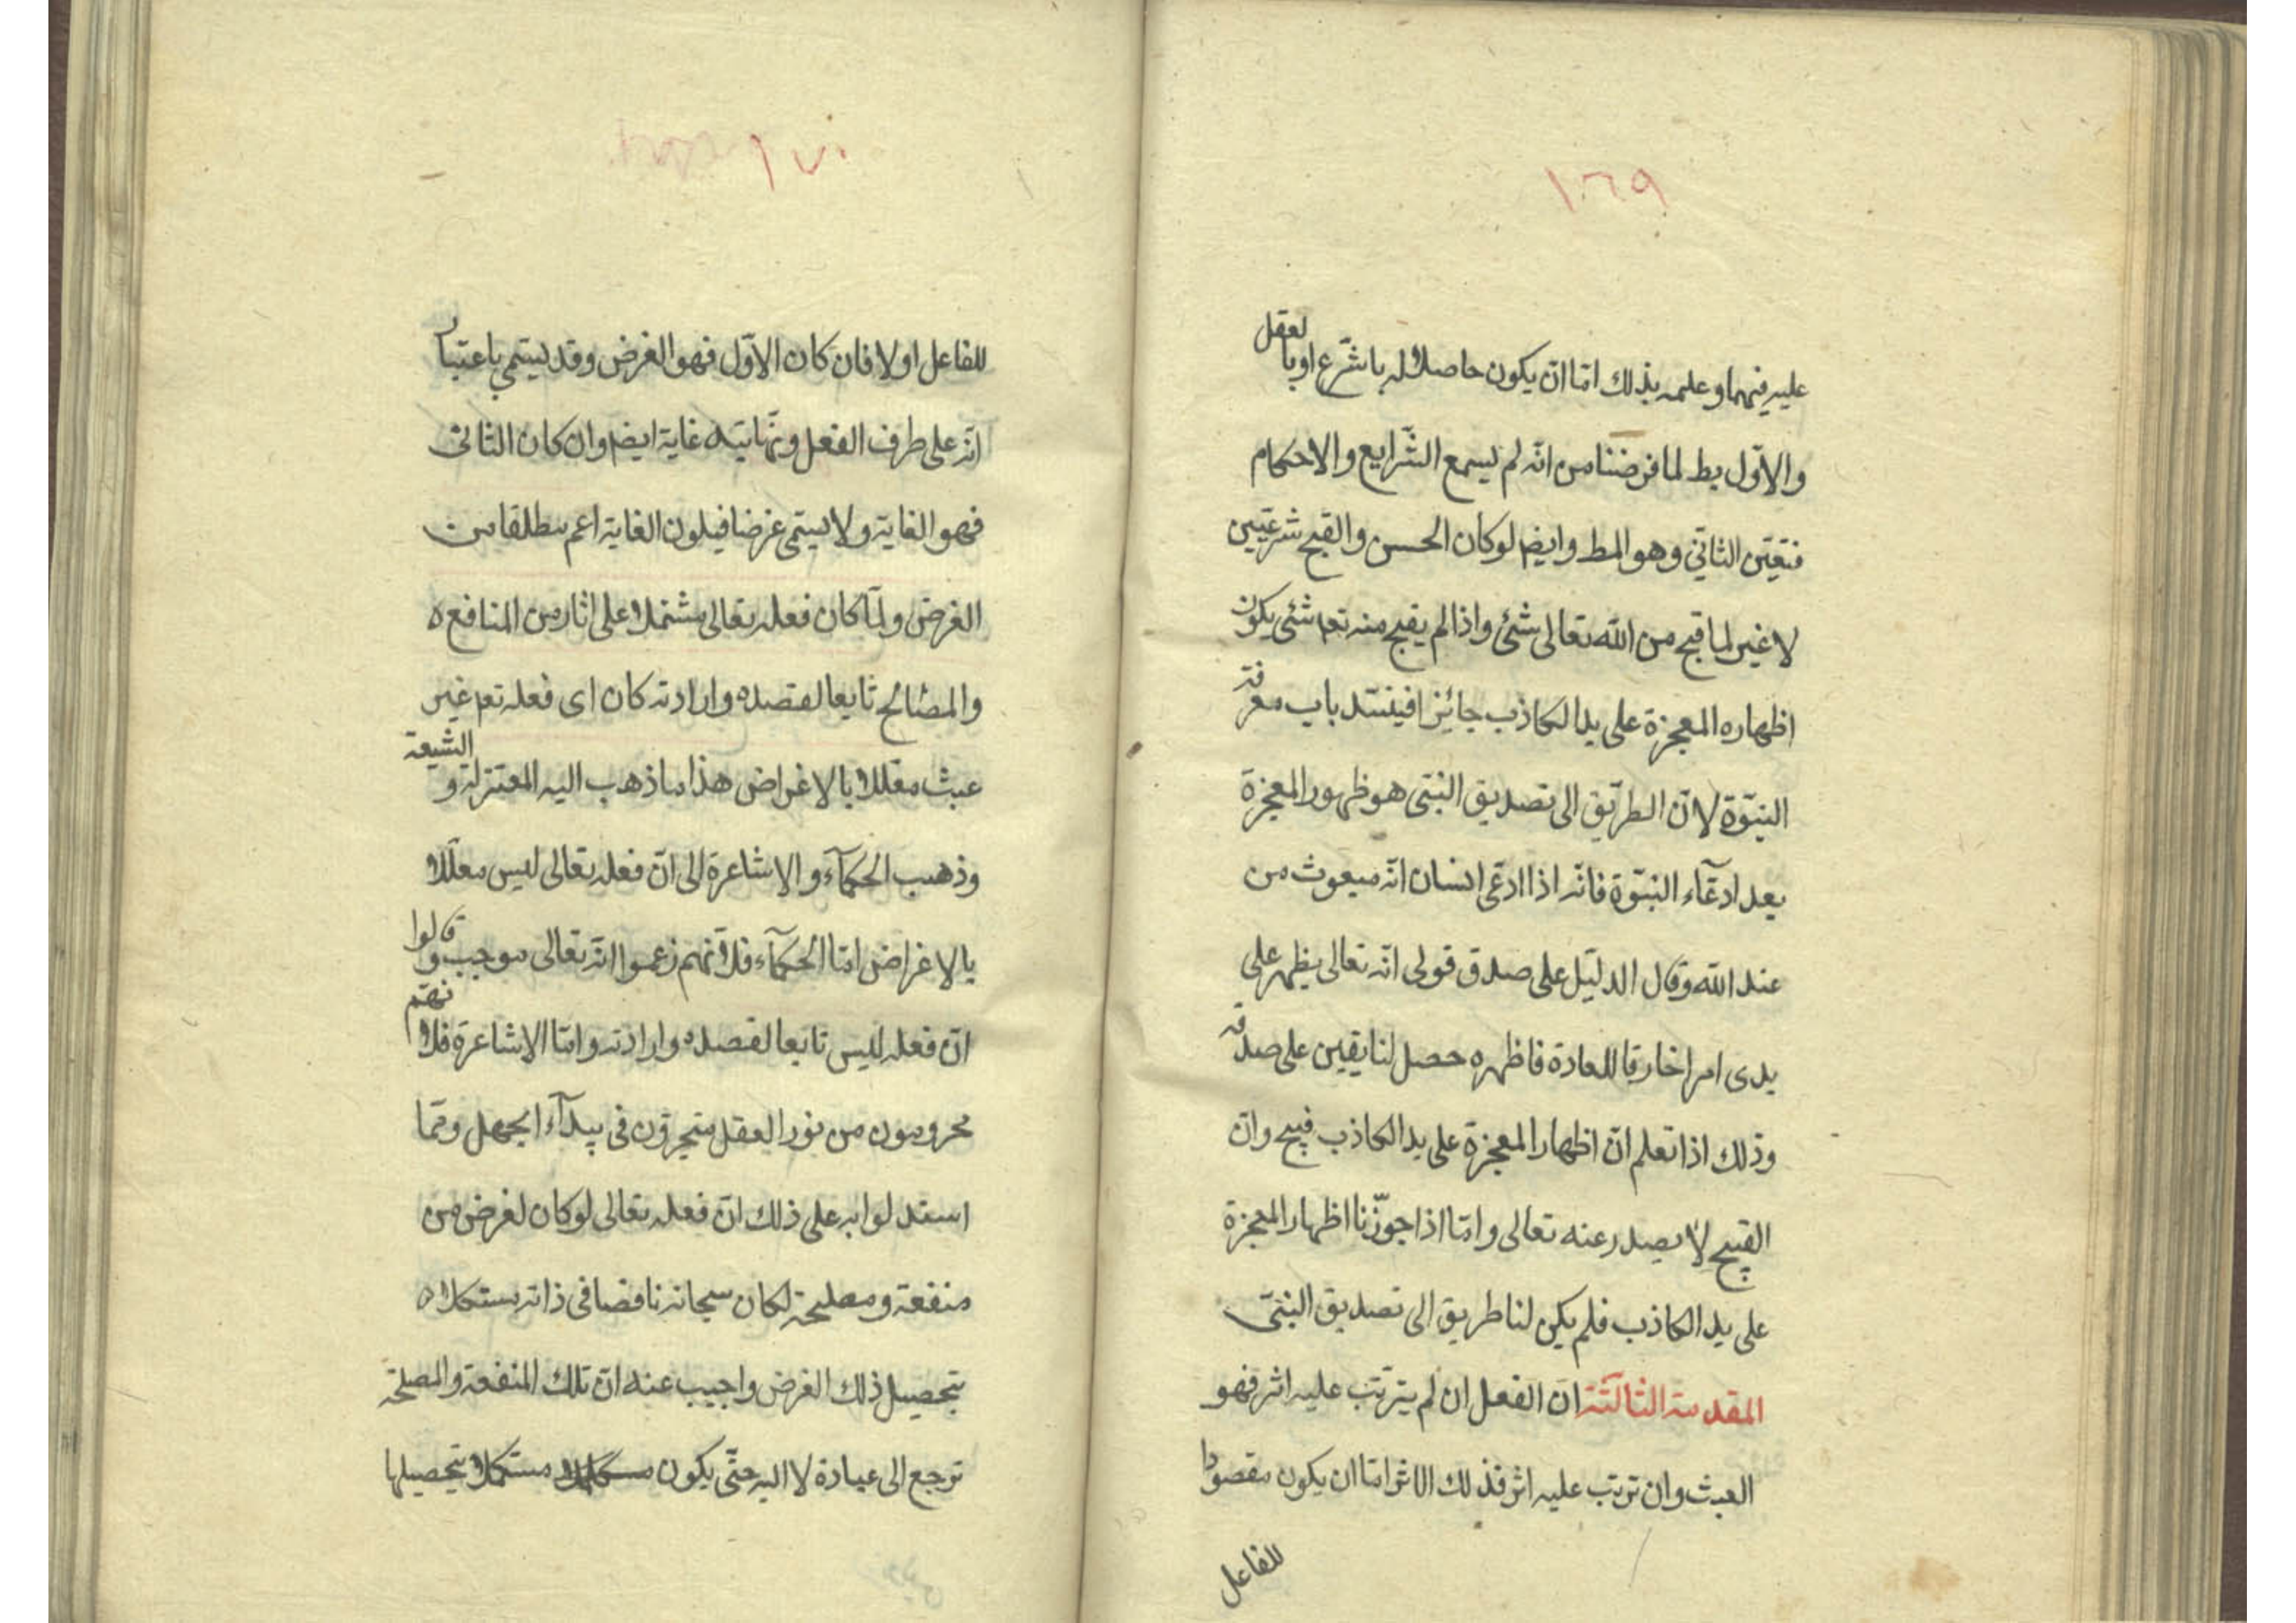 ١٠٦٩
عليه فيهما وعلمه بذلك امّا ان يكون حاصلا له بالشّرع او بالعقل
والاوّل بط لما فرضنا من انّه لم يسمع الشّرايع والاحكام
فتعيّن الثاني وهو المط وايضا لو كان الحسن والقبح شرعيّين
لا غير لما قبح من اللّه تعالى شئ واذا لم يقبح منه تعم شئ يكون
اظهاره المعجزة على يد الكاذب جائزا فينسّد باب معرفة
النبوّة لانّ الطريق الى تصديق النّبي هو ظهور المعجزة
بعد ادعّآء النبوّة فانّه اذا ادعّى انسان انّه مبعوث من
عند اللّه وقال الدليل على صدق قولى انّه تعالى يظهر على
يدى امرا خارقا للعادة فاظهره حصل لنا يقين على صدقه
وذلك اذا تعلم انّ اظهار المعجزة على يد الكاذب قبيح وانّ
القبيح لا يصدر عنه تعالى وامّا اذا جوّزنا اظهار المعجزة
على يد الكاذب فلم يكن لنا طريق الى تصديق النبّى
المقدمة الثالثة انّ الفعل ان لم يترتّب عليه اثر فهو
العبث وان ترتّب عليه اثر فذلك الاثر امّا ان يكون مقصودا
للفاعل
١٠٧٠
للفاعل او لا فان كان الاوّل فهو الغرض وقد يسمّى باعتبار
انّه على طرف الفعل ونهايته غاية ايضا وان كان الثانى
فهو الغاية ولا يسمّى غرضا فيكون الغاية اعم مطلقا من
الغرض ولمّا كان فعله تعالى مشتملا على اثار من المنافع ه
والمصالح تابعا لقصده وارادته كان اى فعله تعم غير
عبث معلّلا بالاغراض هذا ما ذهب اليه المعتزلة و الشيعة
وذهب الحكمآء والاشاعرة الى انّ فعله تعالى ليس معلّلا
بالاغراض امّا الحكمآء فلانّهم زعموا انّه تعالى موجب وقالوا
انّ فعله ليس تابعا لقصده وارادته وامّا الاشاعرة فلانّهم
محرومون من نور العقل متحيرون فى بيدآء الجهل وممّا
استدلوا به على ذلك انّ فعله تعالى لو كان لغرض من
منفعة ومصلحة لكان سبحانه ناقصا فى ذاته مستكملا ه
بتحصيل ذلك الغرض واجيب عنه انّ تلك المنفعة والمصلحة
ترجع الى عباده لا اليه حتّى يكون مستكملا بتحصيلها